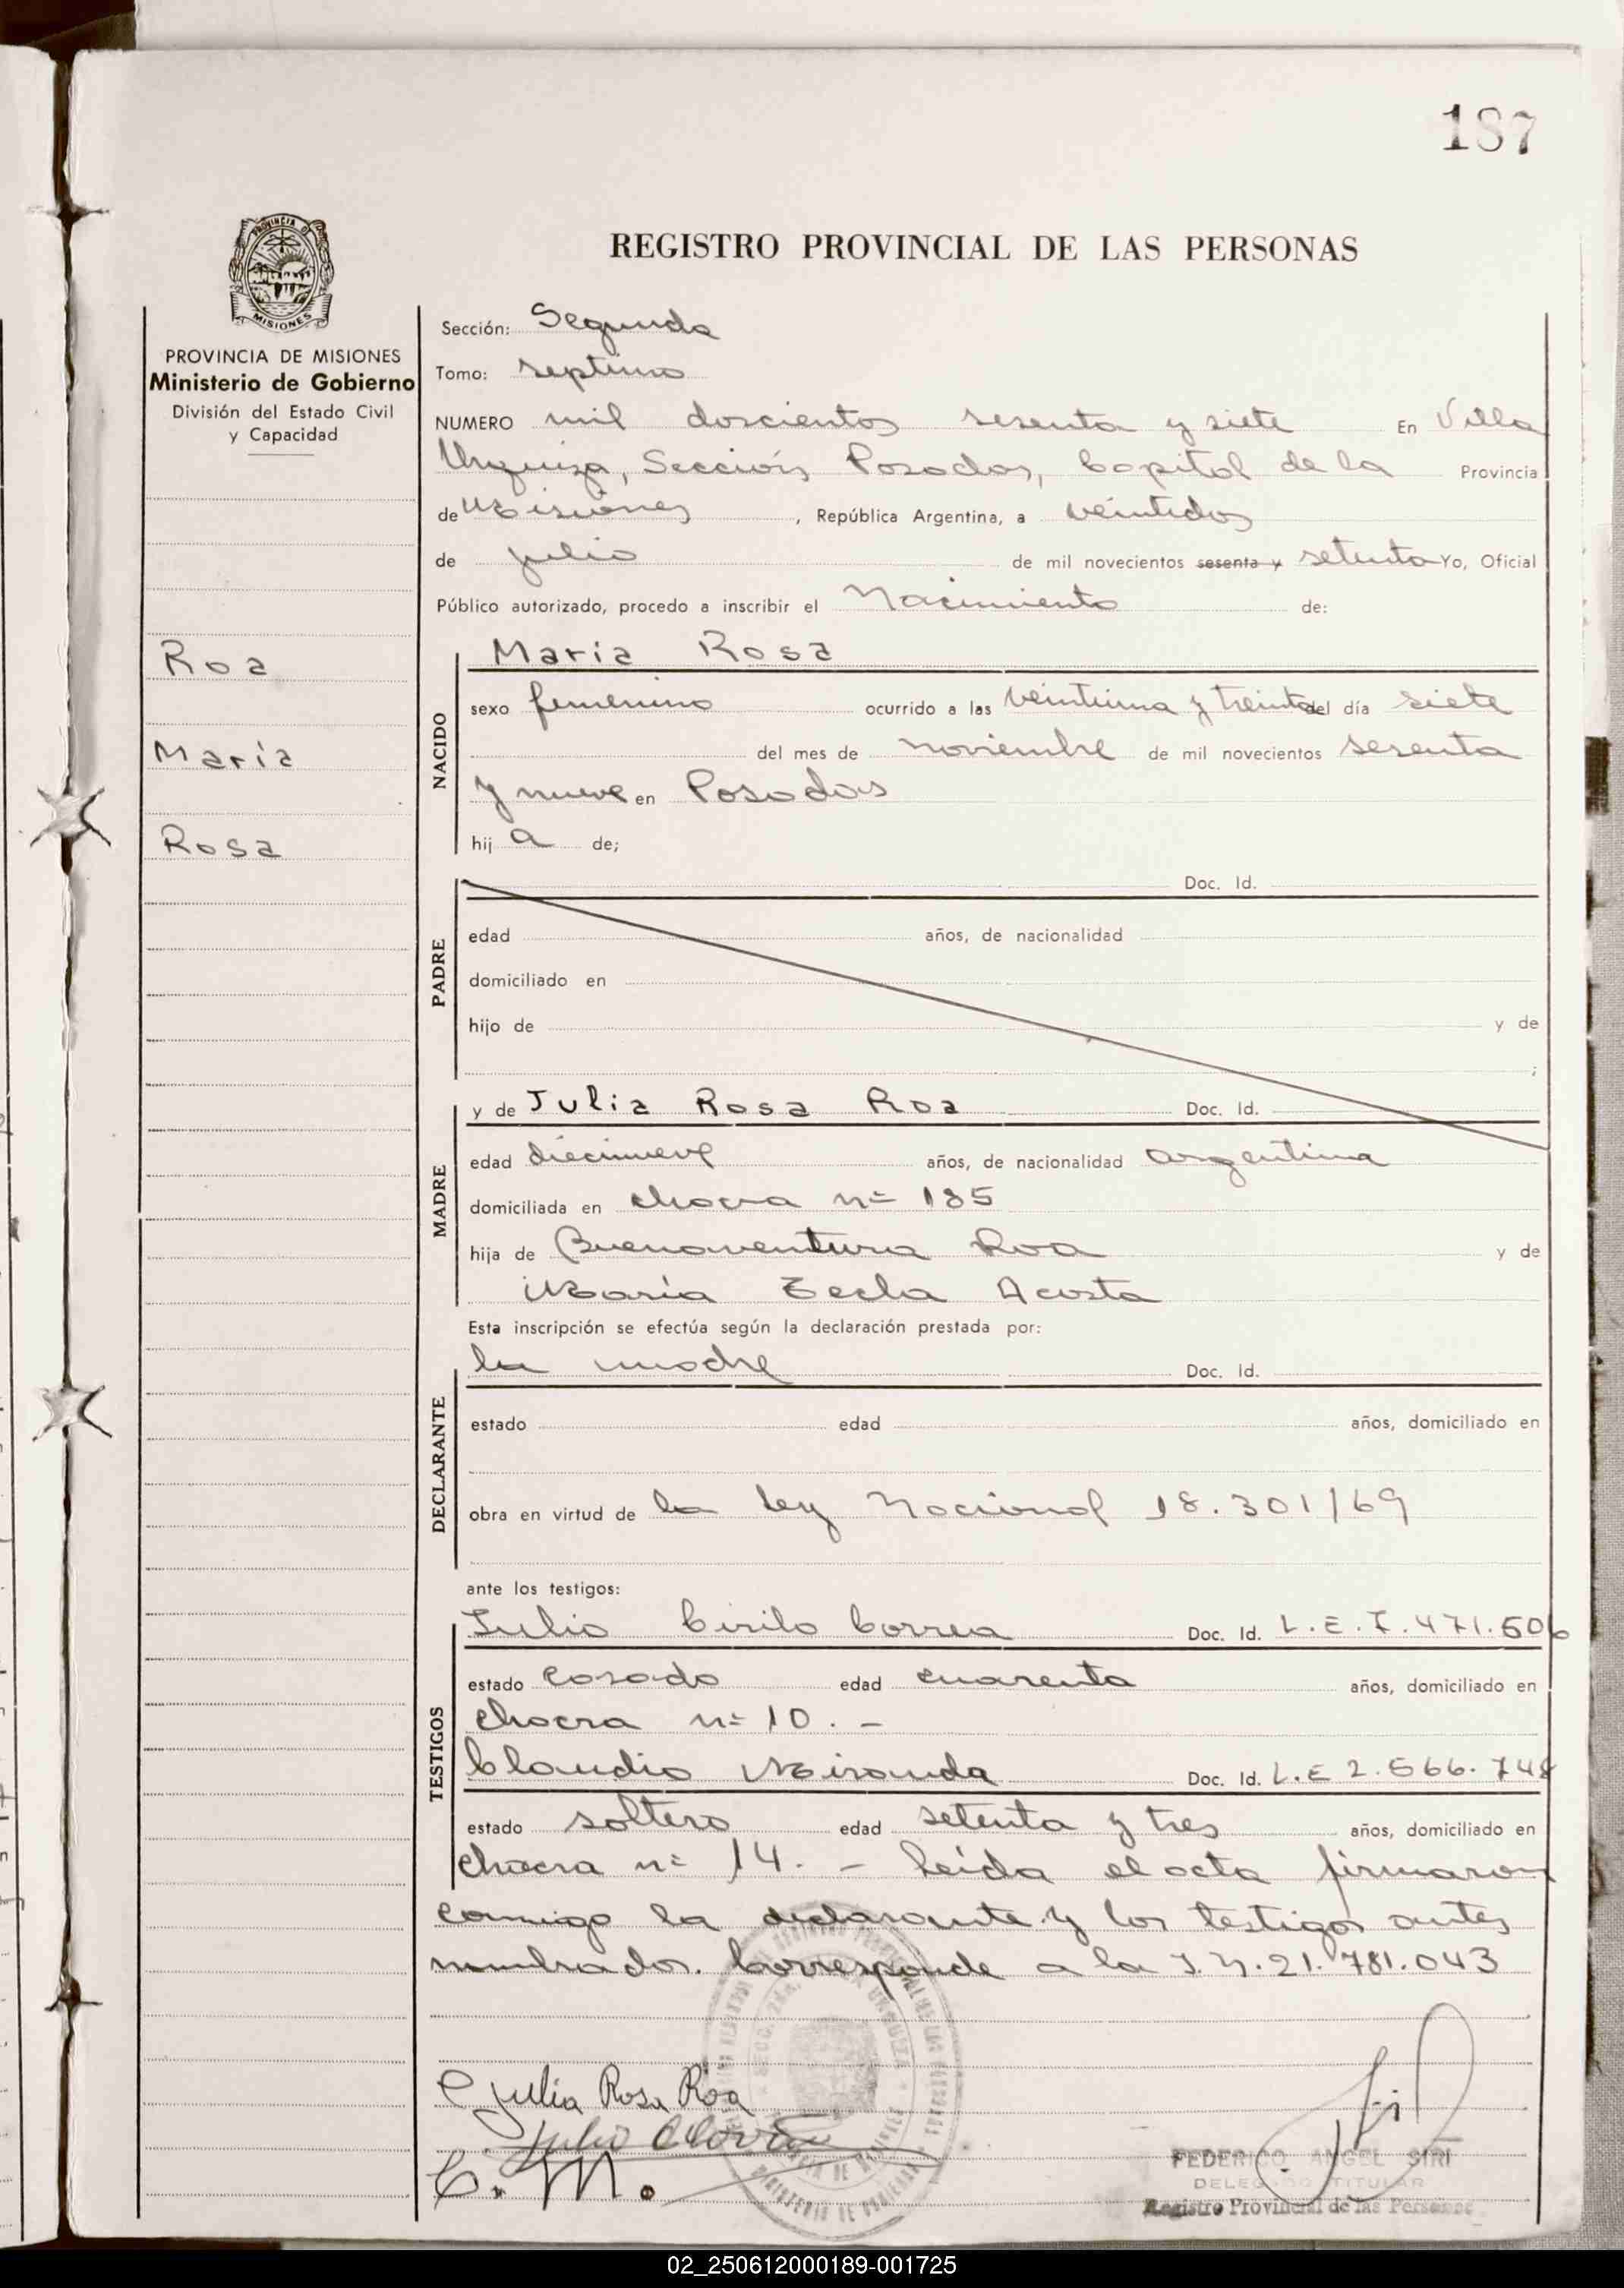 187
PROVINCIA DE
MISIONES
REGISTRO PROVINCIAL DE LAS PERSONAS
PROVINCIA DE MISIONES
Ministerio de Gobierno
División del Estado Civil
y Capacidad
Roa
María
Rosa
Sección: Segunda
Tomo: septimo
NUMERO mil doscientos sesenta y siete En Villa
Urquiza, Sección Posadas, Capital de la Provincia
de Misiones, República Argentina, a veintidos
de julio de mil novecientos sesenta y setenta Yo, Oficial
Público autorizado, procedo a inscribir el Nacimiento de:
NACIDO
Maria Rosa
sexo femenino ocurrido a las veintiuna y treinta del día siete
del mes de noviembre de mil novecientos sesenta
y nueve en Posadas
hija de;
PADRE
Doc. Id.
edad años, de nacionalidad
domiciliado en
hijo de y de
;
MADRE
y de Julia Rosa Roa Doc. Id.
edad diecinueve años, de nacionalidad argentina
domiciliada en chacra nº 185
hija de Buenaventura Roa y de
María Tecla Acosta
Esta inscripción se efectúa según la declaración prestada por:
DECLARANTE
la madre Doc. Id.
estado edad años, domiciliado en
obra en virtud de la ley Nacional 18.301/69
ante los testigos:
TESTIGOS
Julio Cirilo Correa Doc. Id. L.E.7.471.506
estado casado edad cuarenta años, domiciliado en
chacra nº 10. -
Claudio Miranda Doc. Id. L.E 2.566.748
estado soltero edad setenta y tres años, domiciliado en
chacra nº 14. - Leída el acta firmaron
conmigo la declarante y los testigos antes
nombrados. Corresponde a la I.N.21.781.043
Julia Rosa Roa
Julio C Correa
C. M.
FEDERICO ANGEL SIRI
DELEGADO TITULAR
Registro Provincial de las Personas
02_250612000189-001725